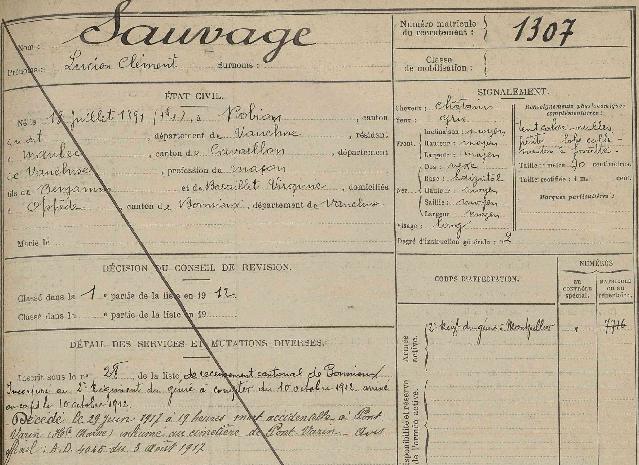 Nom : Sauvage
Prénoms : Lucien Clément Surnoms :
Numéro matricule du recrutement : 1307
Classe de mobilisation :
ÉTAT CIVIL.
Né le juillet 1891, à Robion, canton
dudit, département de Vaucluse, résidant
Maubec, canton de Cavaillon, département
de Vaucluse, profession de maçon
fils de Benjamin et de Virginie, domiciliés
Oppède, canton de Bonnieux, département de Vaucluse
Marié le
SIGNALEMENT.
Cheveux : châtain
Yeux : gris
Front. Inclinaison : moyen
Hauteur : moyen
Largeur : moyen
Nez. Dos :
Base :
Hauteur : moyen
Saillie : moyen
Largeur : moyen
Visage : long
Renseignements physionomiques complémentaires :
Taille : 1 mètre centimètres.
Taille rectifiée : 1 m. cent.
Marques particulières :
Degré d'instruction générale : 2
DÉCISION DU CONSEIL DE REVISION.
Classé dans la 1 e partie de la liste en 19 12.
Classé dans la e partie de la liste en 19
DÉTAIL DES SERVICES ET MUTATIONS DIVERSES.
Inscrit sous le n° 28 de la liste de recrutement cantonal de Bonnieux
Incorporé au 2e Régiment du génie à compter du 10 octobre 1912. arrivé
au corps le 10 octobre 1912
Décédé le 29 juin 1917 à 19 heures mort accidentelle à Pont
Varin (Hte Marne) inhumé au cimetière de Pont-Varin – avis
officiel : A.D. du 5 août 1917
CORPS D'AFFECTATION.
NUMÉROS
au contrôle spécial.
matricule ou au répertoire.
Armée active.
2e Régt du génie à Montpellier
7716
Disponibilité et réserve de l'armée active.